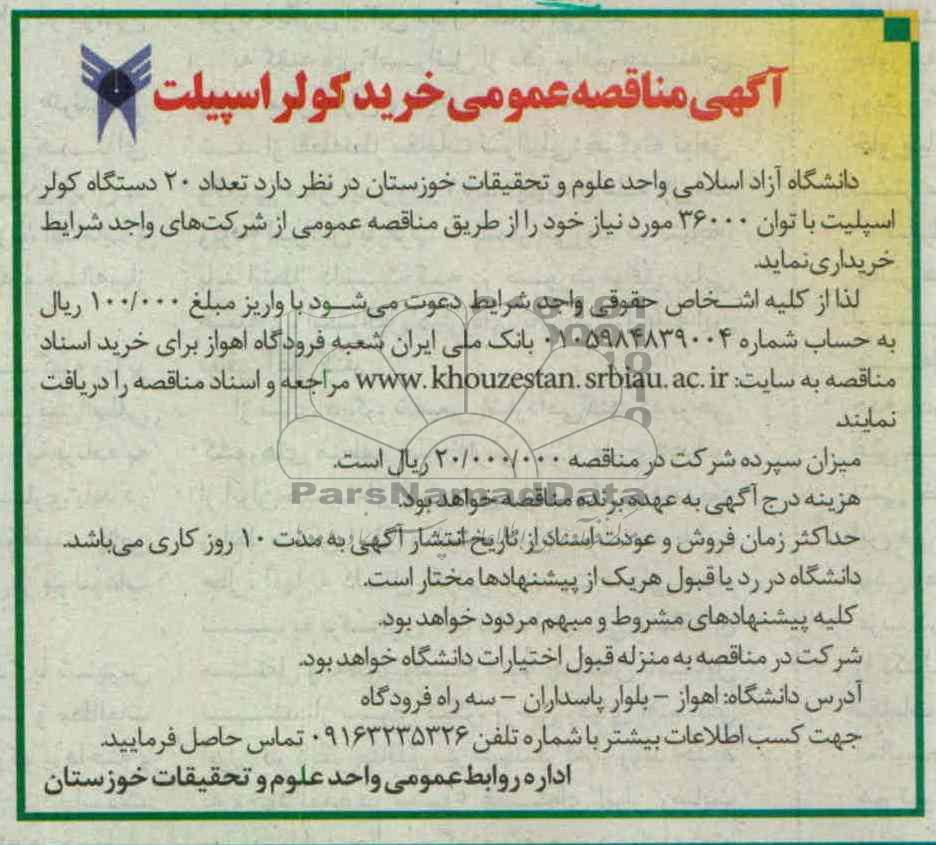 آگهی مناقصه عمومی خرید کولر اسپیلت
دانشگاه آزاد اسلامی واحد علوم و تحقیقات خوزستان در نظر دارد تعداد ۲۰ دستگاه کولر
اسپلیت با توان ۳۶۰۰۰ مورد نیاز خود را از طریق مناقصه عمومی از شرکت‌های واجد شرایط
خریداری نماید.
لذا از کلیه اشخاص حقوقی واجد شرایط دعوت می‌شود با واریز مبلغ ۱۰۰/۰۰۰ ریال
به حساب شماره ۰۱۰۵۹۸۴۸۳۹۰۰۴ بانک ملی ایران شعبه فرودگاه اهواز برای خرید اسناد
مناقصه به سایت: www.khouzestan.srbiau.ac.ir مراجعه و اسناد مناقصه را دریافت
نمایند.
میزان سپرده شرکت در مناقصه ۲۰/۰۰۰/۰۰۰ ریال است.
ParsNamadData
هزینه درج آگهی به عهده برنده مناقصه خواهد بود.
حداکثر زمان فروش و عودت اسناد از تاریخ انتشار آگهی به مدت ۱۰ روز کاری می‌باشد.
دانشگاه در رد یا قبول هریک از پیشنهادها مختار است.
کلیه پیشنهادهای مشروط و مبهم مردود خواهد بود.
شرکت در مناقصه به منزله قبول اختیارات دانشگاه خواهد بود.
آدرس دانشگاه: اهواز – بلوار پاسداران – سه راه فرودگاه
جهت کسب اطلاعات بیشتر با شماره تلفن ۰۹۱۶۳۲۳۵۳۲۶ تماس حاصل فرمایید.
اداره روابط عمومی واحد علوم و تحقیقات خوزستان